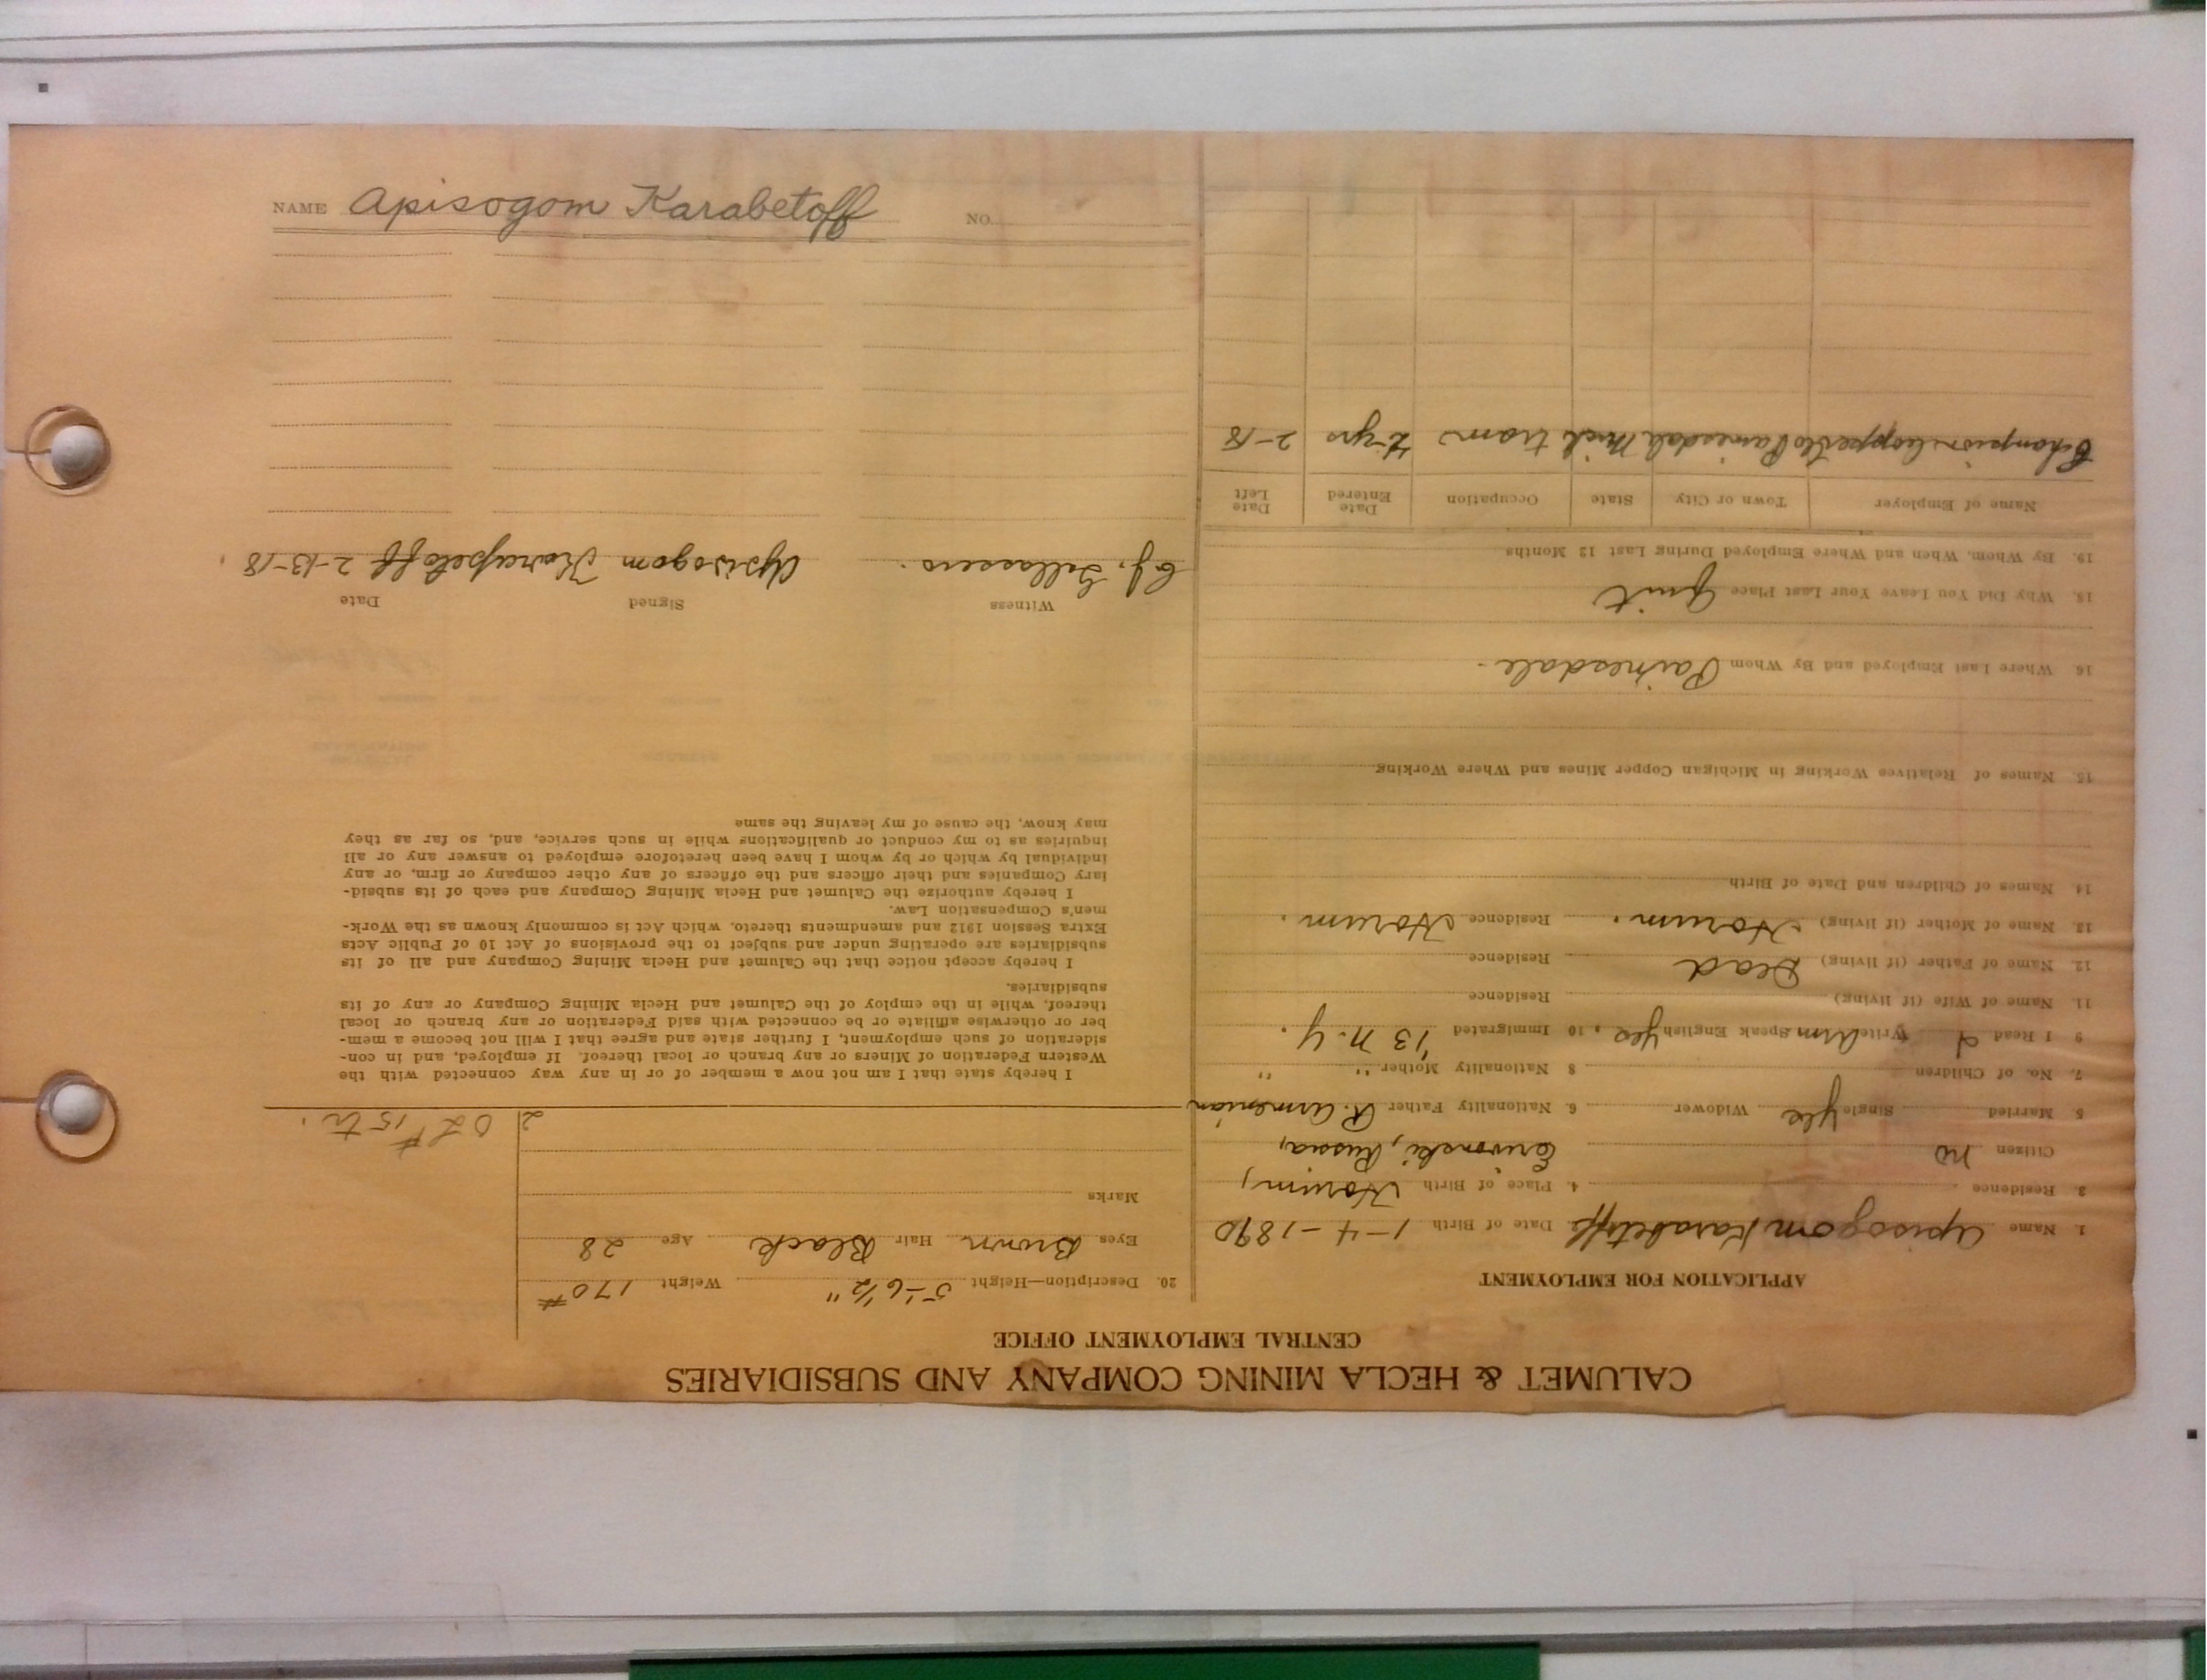 CALUMET & HECLA MINING COMPANY AND SUBSIDIARIES
CENTRAL EMPLOYMENT OFFICE
APPLICATION FOR EMPLOYMENT
1. Name Apisogom Karabetoff 2. Date of Birth 1-4-1890
3. Residence 4. Place of Birth Horum,
Citizen no Erivonski, Russia,
5 Married Single yes Widower 6. Nationality Father R. Armenian
7. No. of Children 8 Nationality Mother " "
9 I Read I Write Arm Speak English yes, 10 Immigrated '13 N.Y.
11. Name of Wife (if living) Residence
12. Name of Father (if living) Dead Residence
13. Name of Mother (if living) Horum. Residence Horum.
14. Names of Children and Date of Birth
15. Names of Relatives Working in Michigan Copper Mines and Where Working
16. Where Last Employed and By Whom Painesdale-
18. Why Did You Leave Your Last Place Quit
19. By Whom, When and Where Employed During Last 12 Months
Name of Employer Town or City State Occupation Date Entered Date Left
Champion Copper Co Painesdale Mich tram 2-yrs 2-18
20. Description—Height 5'-6 1/2" Weight 170#
Eyes Brown Hair Black Age 28
Marks
2
#15 tr.
I hereby state that I am not now a member of or in any way connected with the
Western Federation of Miners or any branch or local thereof. If employed, and in con-
sideration of such employment, I further state and agree that I will not become a mem-
ber or otherwise affiliate or be connected with said Federation or any branch or local
thereof, while in the employ of the Calumet and Hecla Mining Company or any of its
subsidiaries.
I hereby accept notice that the Calumet and Hecla Mining Company and all of its
subsidiaries are operating under and subject to the provisions of Act 10 of Public Acts
Extra Session 1912 and amendments thereto, which Act is commonly known as the Work-
men's Compensation Law.
I hereby authorize the Calumet and Hecla Mining Company and each of its subsid-
iary Companies and their officers and the officers of any other company or firm, or any
individual by which or by whom I have been heretofore employed to answer any or all
inquiries as to my conduct or qualifications while in such service, and, so far as they
may know, the cause of my leaving the same
Witness Signed Date
Apisogom Karapetoff 2-13-18
NAME Apisogom Karabetoff NO.